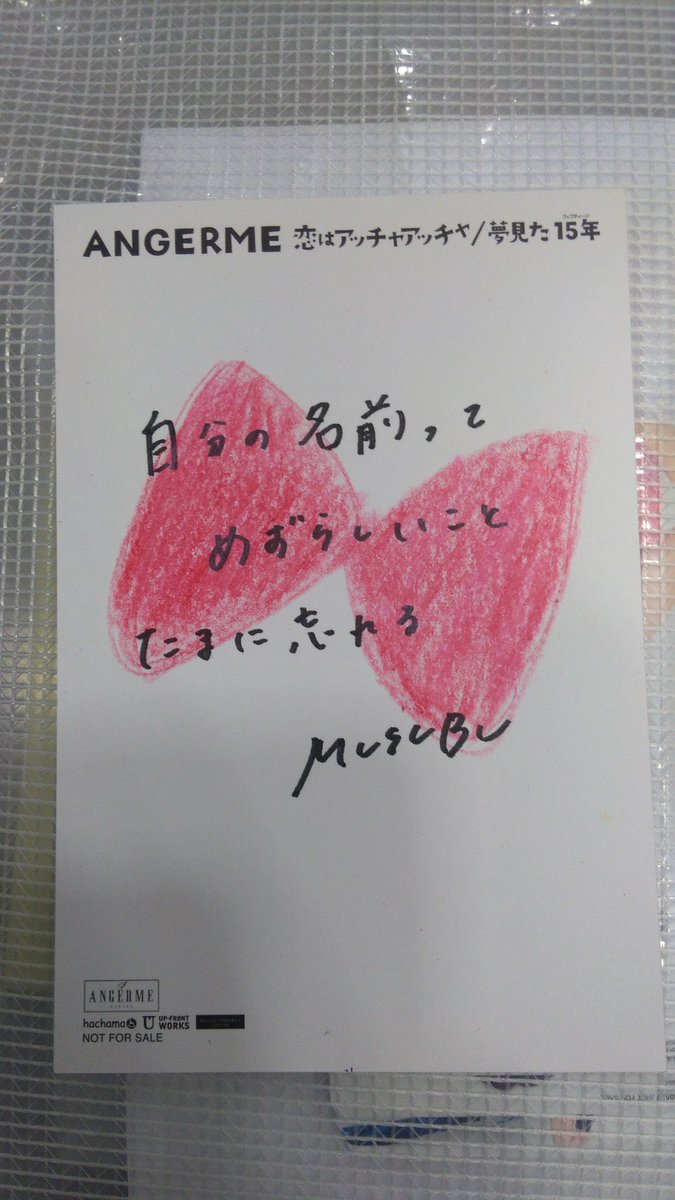 ANGERME 恋はアッチャアッチャ/夢見た15年
フィフティーン
自分の名前って
めずらしいこと
たまに忘れる
MUSUBU
ANGERME
hachama UP-FRONT WORKS
NOT FOR SALE